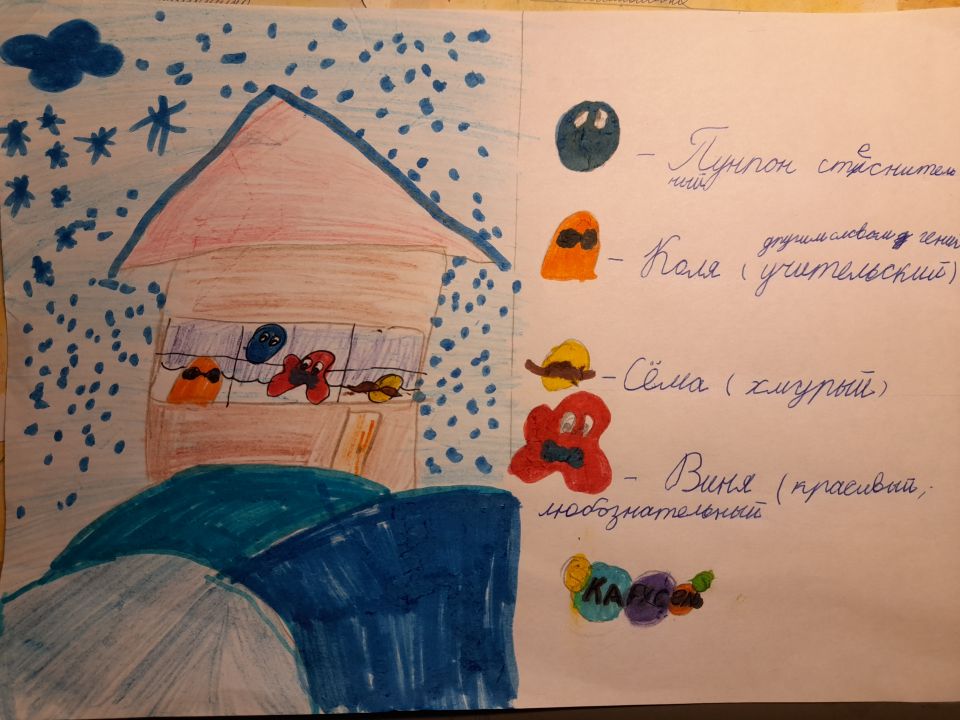 - Пунпон стеснитель
ный
другим словом гений
- Коля (учительский)
- Сёма (хмурый)
- Виня (красивый,
любознательный
Карусель